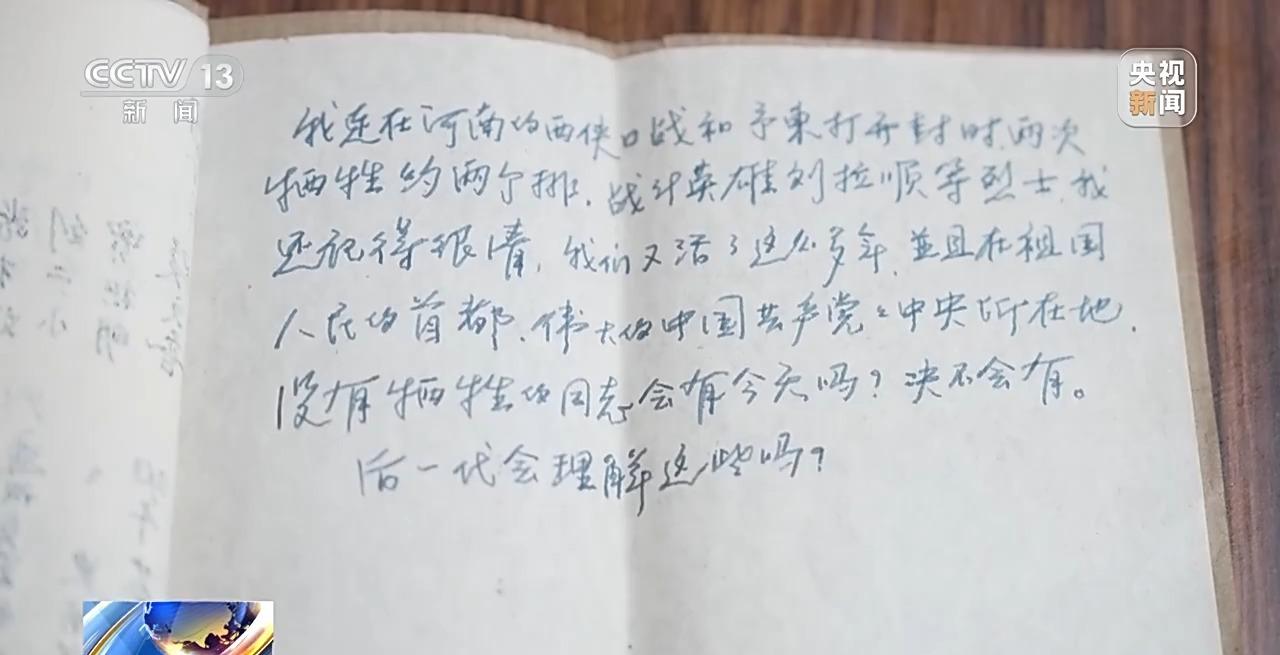 CCTV 13
新闻
央视
新闻
我连在河南的西侠口战和予東打开封时两次
牺牲约两个排，战斗英雄刘拉顺等烈士，我
还记得很清，我们又活了这么多年，並且在祖国
人民的首都，伟大的中国共产党之中央所在地，
没有牺牲的同志会有今天吗？决不会有。
后一代会理解这些吗？